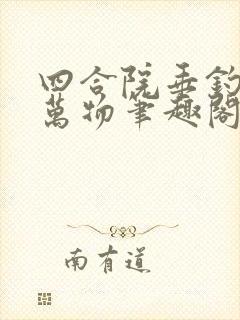 四合院垂釣
萬物筆趣閣
南有道